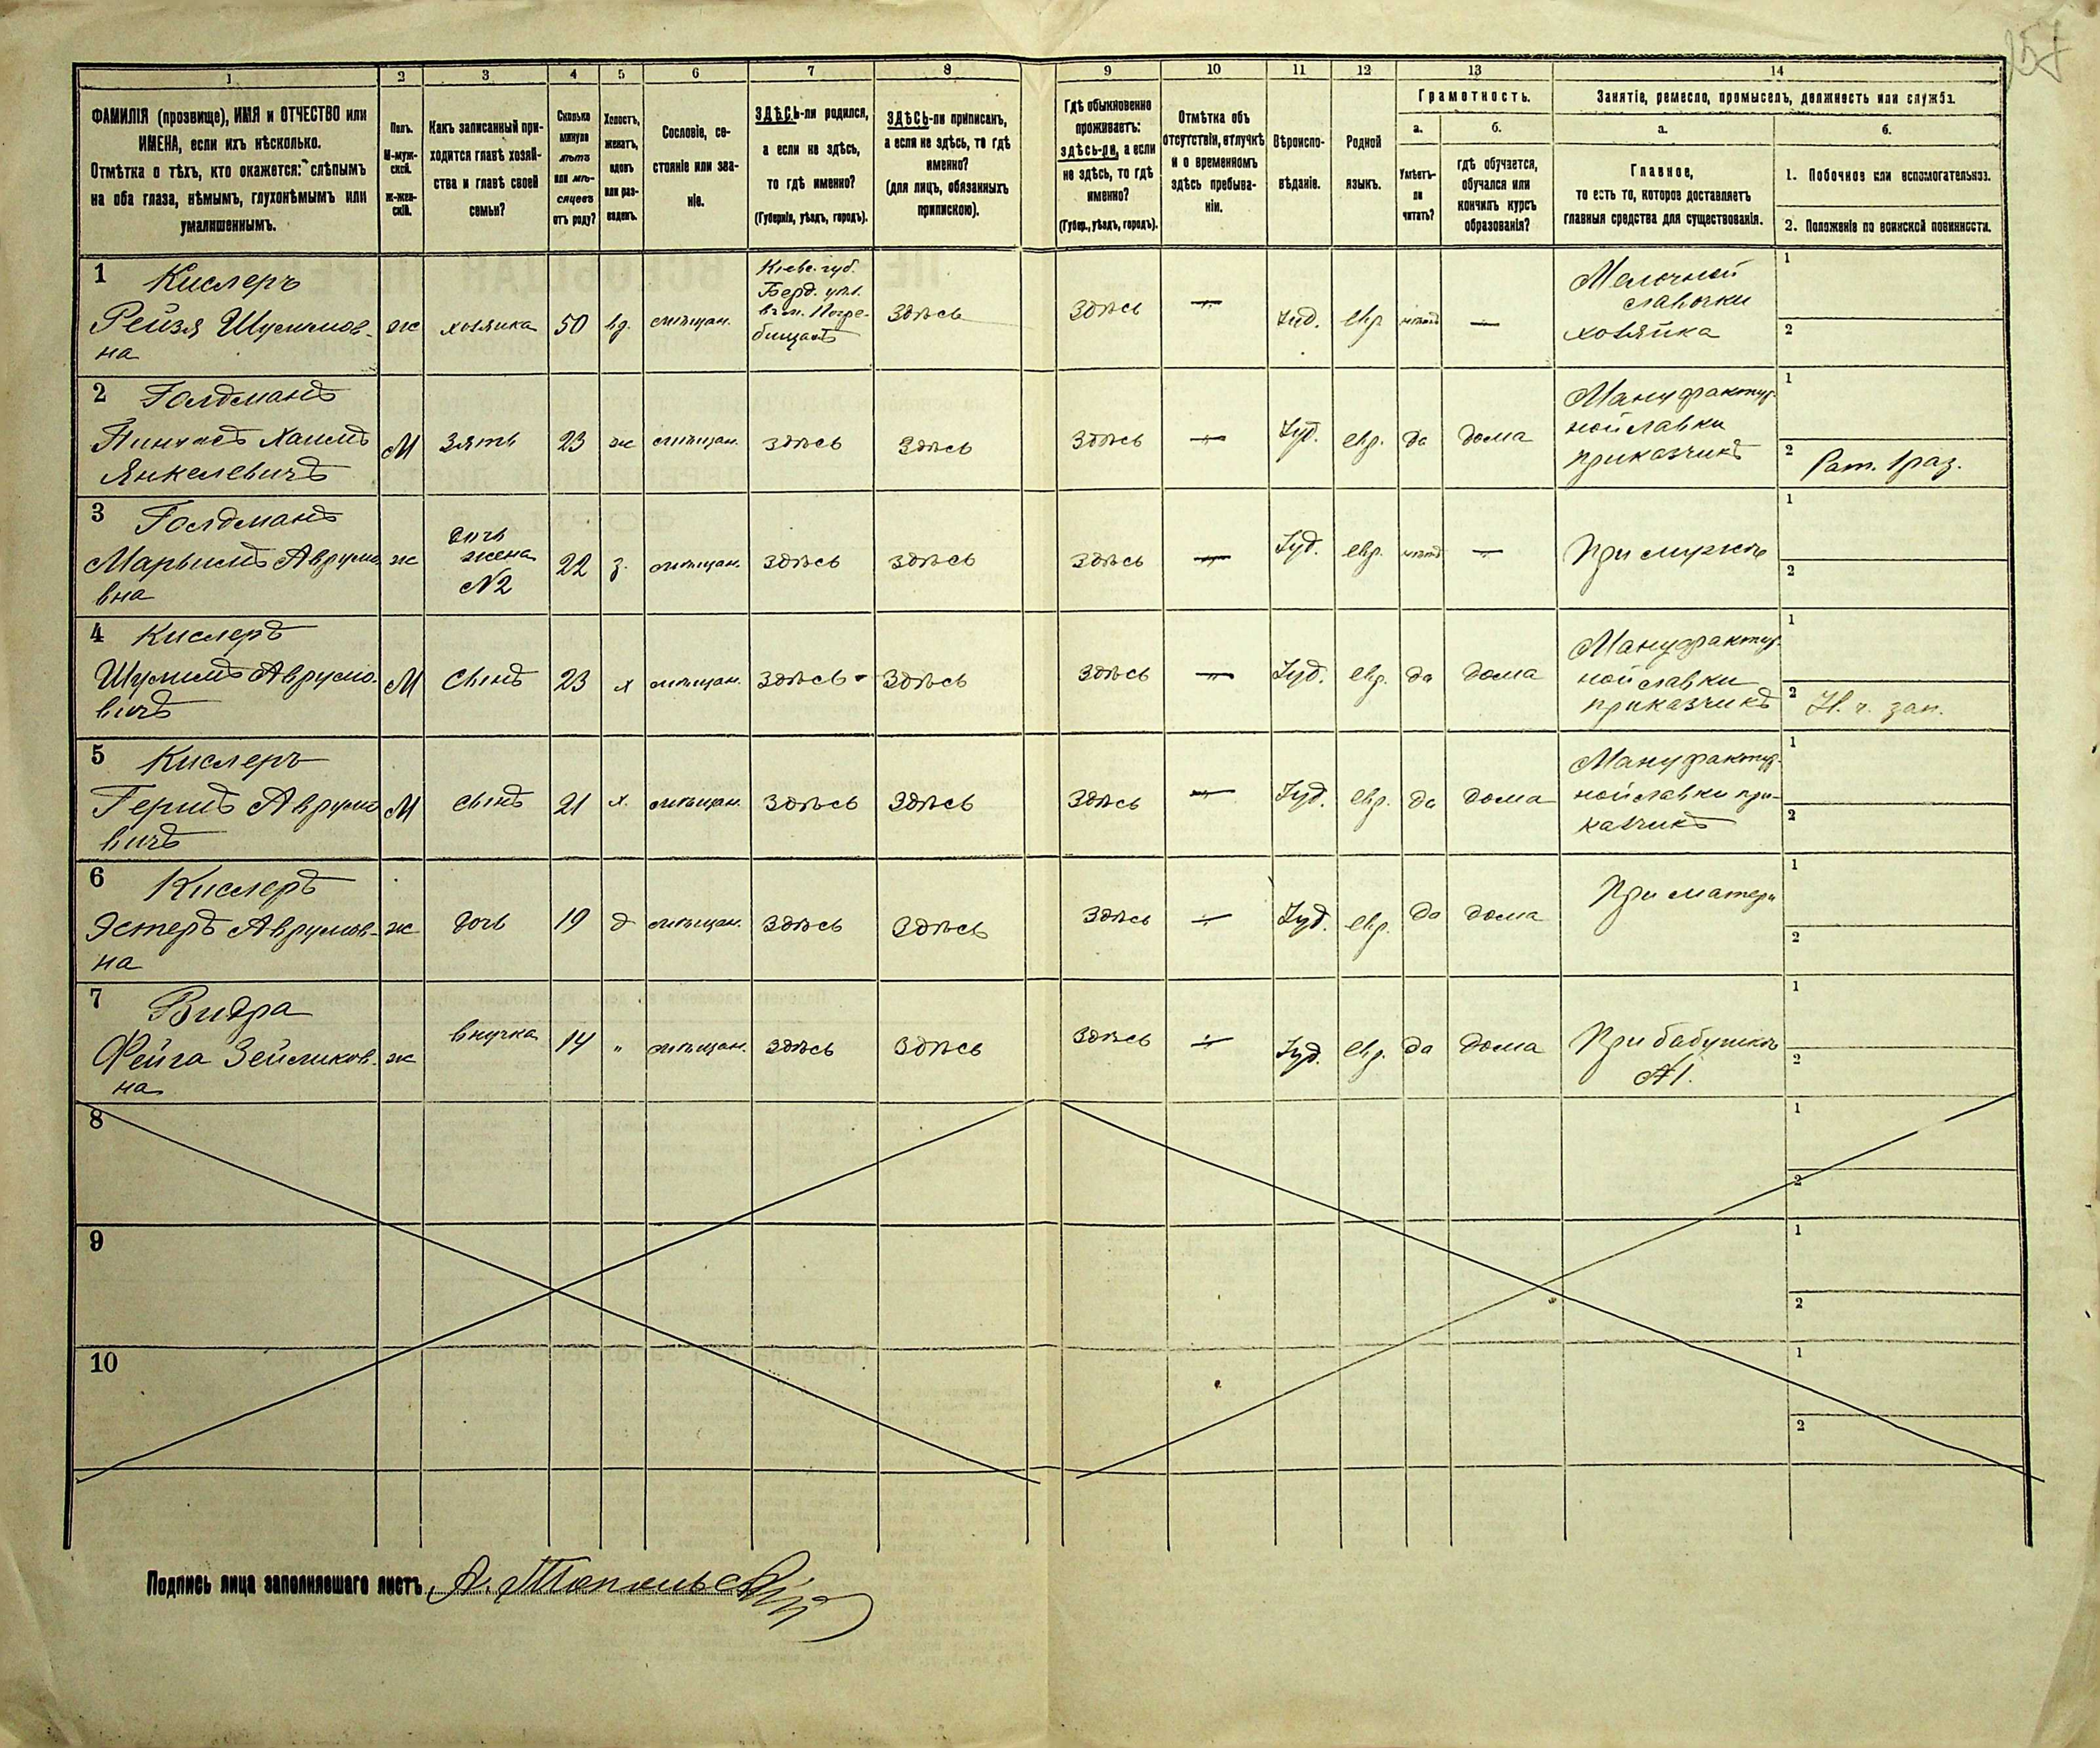 257
1 2 3 4 5 6 7 8 9 10 11 12 13 14
ФАМИЛІЯ (прозвище), ИМЯ и ОТЧЕСТВО или
ИМЕНА, если ихъ нѣсколько.
Отмѣтка о тѣхъ, кто окажется: слѣпымъ
на оба глаза, нѣмымъ, глухонѣмымъ или
умалишеннымъ.
Полъ.
М-муж-
ской.
Ж-жен-
скій.
Какъ записанный при-
ходится главѣ хозяй-
ства и главѣ своей
семьи?
Сколько
минуло
лѣтъ
или мѣ-
сяцевъ
отъ роду?
Холостъ,
женатъ,
вдовъ
или раз-
веденъ.
Сословіе, со-
стояніе или зва-
ніе.
ЗДѢСЬ-ли родился,
а если не здѣсь,
то гдѣ именно?
(Губернія, уѣздъ, городъ).
ЗДѢСЬ-ли приписанъ,
а если не здѣсь, то гдѣ
именно?
(для лицъ, обязанныхъ
припискою).
Гдѣ обыкновенно
проживаетъ:
здѣсь-ли, а если
не здѣсь, то гдѣ
именно?
(Губер., уѣздъ, городъ).
Отмѣтка объ
отсутствіи, отлучкѣ
и о временномъ
здѣсь пребыва-
ніи.
Вѣроиспо-
вѣданіе.
Родной
языкъ.
Грамотность.
а.
Умѣетъ-
ли
читать?
б.
гдѣ обучается,
обучался или
кончилъ курсъ
образованія?
Занятіе, ремесло, промыселъ, должность или служба.
а.
Главное,
то есть то, которое доставляетъ
главныя средства для существованія.
б.
1. Побочное или вспомогательное.
2. Положеніе по воинской повинности.
1 Кислеръ
Рейзя Шулимов-
на
ж
хозяйка
50
вд.
мѣщан.
Кіевс. губ.
Берд. уѣз.
въ м. Погре-
бищахъ
Здѣсь
Здѣсь
—
Іуд.
евр
нѣтъ
—
Мелочной
лавочки
хозяйка
1
2
2 Голдманъ
Пинхасъ Хаимъ
Янкелевичъ
М
Зять
23
ж
мѣщан.
здѣсь
Здѣсь
Здѣсь
—
Іуд.
евр.
да
дома
Мануфактур-
ной лавки
приказчикъ
1
2 Рат. 1 раз.
3 Голдманъ
Марьимъ Аврумо
вна
ж
дочь
жена
№2
22
з.
мѣщан.
здѣсь
здѣсь
здѣсь
—
Іуд.
евр.
нѣтъ
—
При мужѣ
1
2
4 Кислеръ
Шулимъ Аврумо-
вичъ
М
Сынъ
23
х
мѣщан.
Здѣсь
Здѣсь
Здѣсь
—
Іуд.
евр.
да
дома
Мануфактур-
ной лавки
приказчикъ
1
2 Н. ч. зап.
5 Кислеръ
Гершъ Аврумо
вичъ
М
сынъ
21
х.
мѣщан.
Здѣсь
Здѣсь
Здѣсь
—
Іуд.
евр.
да
дома
Мануфактур-
ной лавки при-
казчикъ
1
2
6 Кислеръ
Эстеръ Аврумов-
на
ж
дочь
19
д
мѣщан.
Здѣсь
Здѣсь
Здѣсь
—
Іуд.
евр.
да
дома
При матери
1
2
7 Видра
Фейга Зейликов-
на
ж
внучка
14
"
мѣщан.
здѣсь
Здѣсь
Здѣсь
—
Іуд.
евр.
да
дома
При бабушкѣ
№1.
1
2
8
1
2
9
1
2
10
1
2
Подпись лица заполнявшаго листъ